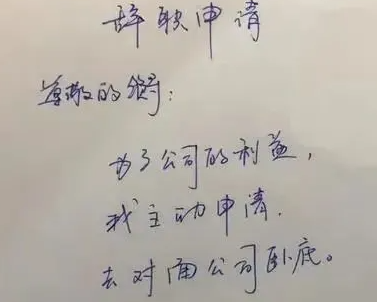 辞职申请
尊敬的领导:
为了公司的利益,
我主动申请.
去对面公司卧底。